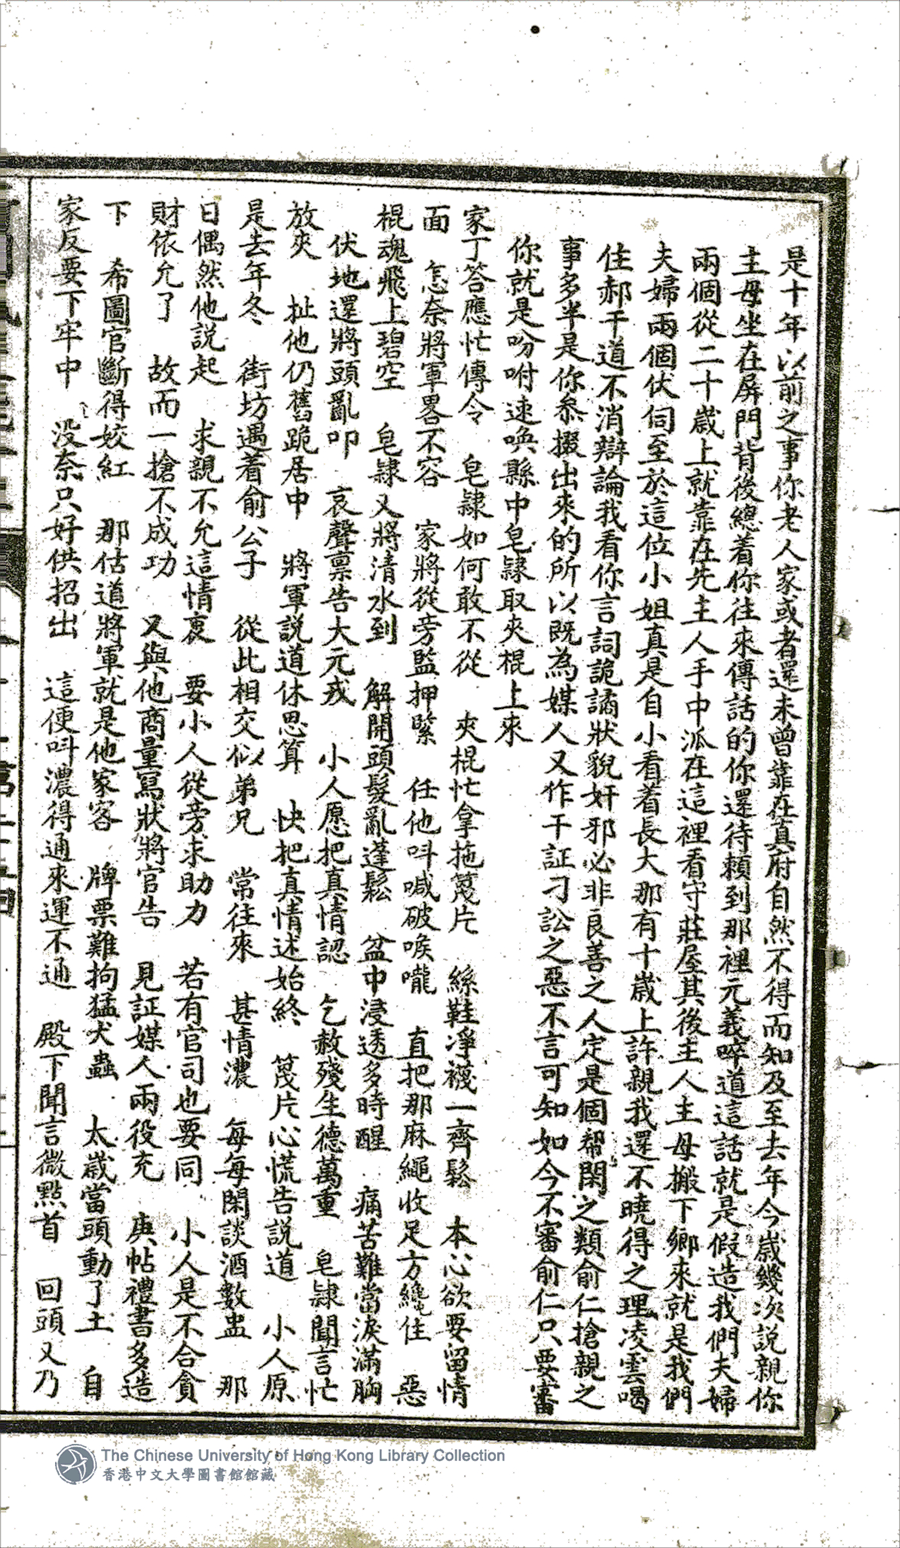 是十年以前之事你老人家或者還未曾靠在真府自然不得而知及至去年今歲幾次說親你
主母坐在屏門背後總着你往來傳話的你還待賴到那裡元義啐道這話就是假造我們夫婦
兩個從二十歲上就靠在先主人手中派在這裡看守莊屋其後主人主母搬下鄉來就是我們
夫婦兩個伏伺至於這位小姐真是自小看着長大那有十歲上許親我還不曉得之理凌雲喝
住郝干道不消辯論我看你言詞詭譎狀貌奸邪必非良善之人定是個帮閑之類俞仁搶親之
事多半是你叅掇出來的所以既為媒人又作干証刁訟之惡不言可知如今不審俞仁只要審
你就是吩咐速喚縣中皂隸取夾棍上來
家丁答應忙傳令　皂隸如何敢不從　夾棍忙拿拖篾片　絲鞋淨襪一齊鬆　本心欲要留情
面　怎奈將軍畧不容　家將從旁監押緊　任他呌喊破喉嚨　直把那麻繩收足方纔住　惡
棍魂飛上碧空　皂隸又將清水到　解開頭髮亂蓬鬆　盆中浸透多時醒　痛苦難當淚滿胸
伏地還將頭亂叩　哀聲禀告大元戎　小人愿把真情認　乞赦殘生德萬重　皂隸聞言忙
放夾　扯他仍舊跪居中　將軍説道休思算　快把真情述始終　篾片心慌告説道　小人原
是去年冬　街坊遇着俞公子　從此相交似弟兄　常往來　甚情濃　每每閑談酒數盅　那
日偶然他説起　求親不允這情衷　要小人從旁求助力　若有官司也要同　小人是不合貪
財依允了　故而一搶不成功　又與他商量寫狀將官告　見証媒人兩役充　庚帖禮書多造
下　希圖官斷得姣紅　那估道將軍就是他家客　牌票難拘猛犬蟲　太歲當頭動了土　自
家反要下牢中　没奈只好供招出　這便呌濃得通來運不通　殿下聞言微㸃首　回頭又乃
The Chinese University of Hong Kong Library Collection
香港中文大學圖書館館藏